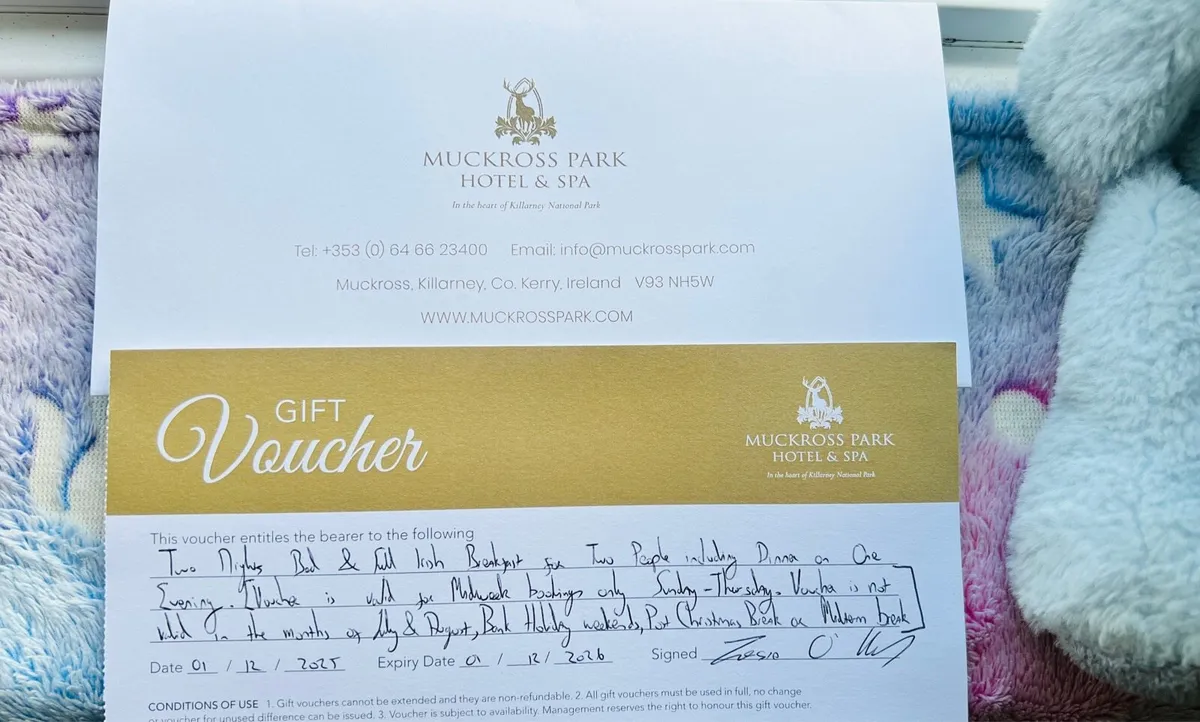 MUCKROSS PARK
HOTEL & SPA
In the heart of Killarney National Park
Tel: +353 (0) 64 66 23400 Email: info@muckrosspark.com
Muckross, Killarney, Co. Kerry, Ireland V93 NH5W
WWW.MUCKROSSPARK.COM
GIFT
Voucher
MUCKROSS PARK
HOTEL & SPA
In the heart of Killarney National Park
This voucher entitles the bearer to the following
Two Nights Bed & Full Irish Breakfast for Two People including Dinner on One
Evening. [Voucher is valid for Midweek bookings only Sunday-Thursday. Voucher is not
valid in the months of July & August, Bank Holiday weekends, Post Christmas Break or Midterm break]
Date 01 / 12 / 2025 Expiry Date 01 / 12 / 2026 Signed
CONDITIONS OF USE 1. Gift vouchers cannot be extended and they are non-refundable. 2. All gift vouchers must be used in full, no change
or voucher for unused difference can be issued. 3. Voucher is subject to availability. Management reserves the right to honour this gift voucher.